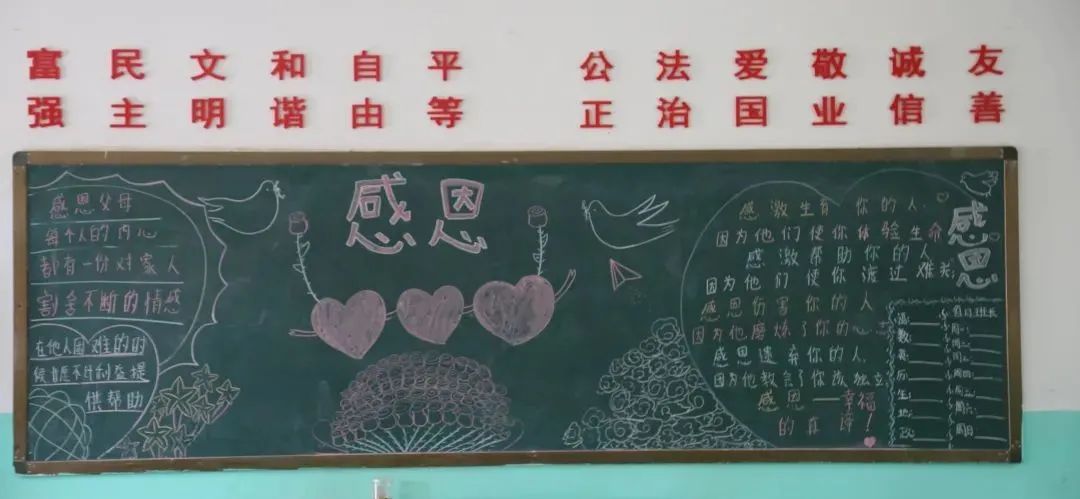 富强 民主 文明 和谐 自由 平等 公正 法治 爱国 敬业 诚信 友善
感恩父母
每个人的内心
都有一份对家人
割舍不断的情感
在他人困难的时
候自愿不计利益提
供帮助
感恩
感激生育你的人
因为他们使你体验生命
感激帮助你的人
因为他们使你渡过难关
感恩伤害你的人
因为他磨炼了你的心志
感恩遗弃你的人
因为他教会了你该独立
感恩——幸福
的真谛!
感恩
语:
数:
英:
历:
生:
地:
政:
值日班长
周一:
周二:
周三:
周四:
周五:
周六:
周日: